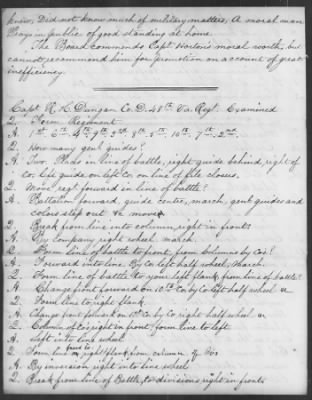 know, Did not know much of military matters, A moral man
Prays in public of good standing at home.
The Board commends Capt Horton's moral worth, but
cannot recommend him for promotion on account of great
inefficiency.
Capt R. H. Dungan Co. D. 48th Va Regt. Examined
Q. Form Regiment
A. 1st 6th 4th 9th 3rd 8th 5th 10th 7th 2nd
Q. How many genl guides?
A. Two. Place in line of battle, right guide behind, right of
co. left guide on left co on line of file closers.
Q. Move regt forward in line of battle?
A. Battalion forward, guide centre, march, genl guides and
colors step out &c move
Q. Break from line into column, right in front?
A. By company right wheel. march.
Q. Form line of battle to front, from column by Cos?
A. Forward into line By Co left half wheel, March.
Q. Form line of battle to your left flank, from line of battle?
A. Change front forward on 10th Co by Co left half wheel &c
Q. Form line to right flank.
A. Change front forward on 1st Co by Co right half wheel &c
Q. Column of Cos right in front, form line to left
A. Left into line wheel
Q. Form line on right flank from column of Cos
A. By inversion right into line wheel
Q. Break from line of Battle, to divisions right in front